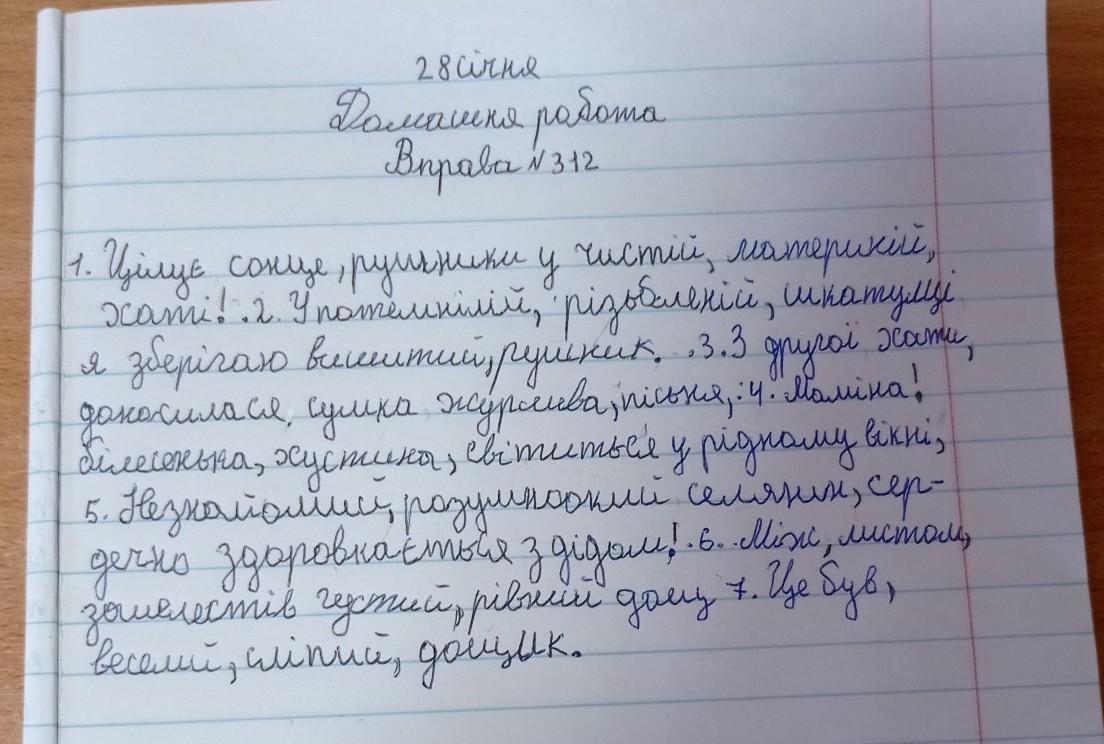 28 січня
Домашня робота
Вправа №312
1. Цілує сонце, рушники у чистій, материній,
хаті! .2. У потемнілій, різьбленій, шкатулці
я зберігаю вишитий, рушник. .3. З другої хати,
доносилася, сумна журлива, пісня, .4. Мамина!
білесенька, хустина, світиться у рідному вікні,
5. Незнайомий, розумноокий селянин, сер-
дечно здоровкається з дідом! .6. Між, листом,
зашелестів густий, рівний дощ 7. Це був,
веселий, сліпий, дощик.